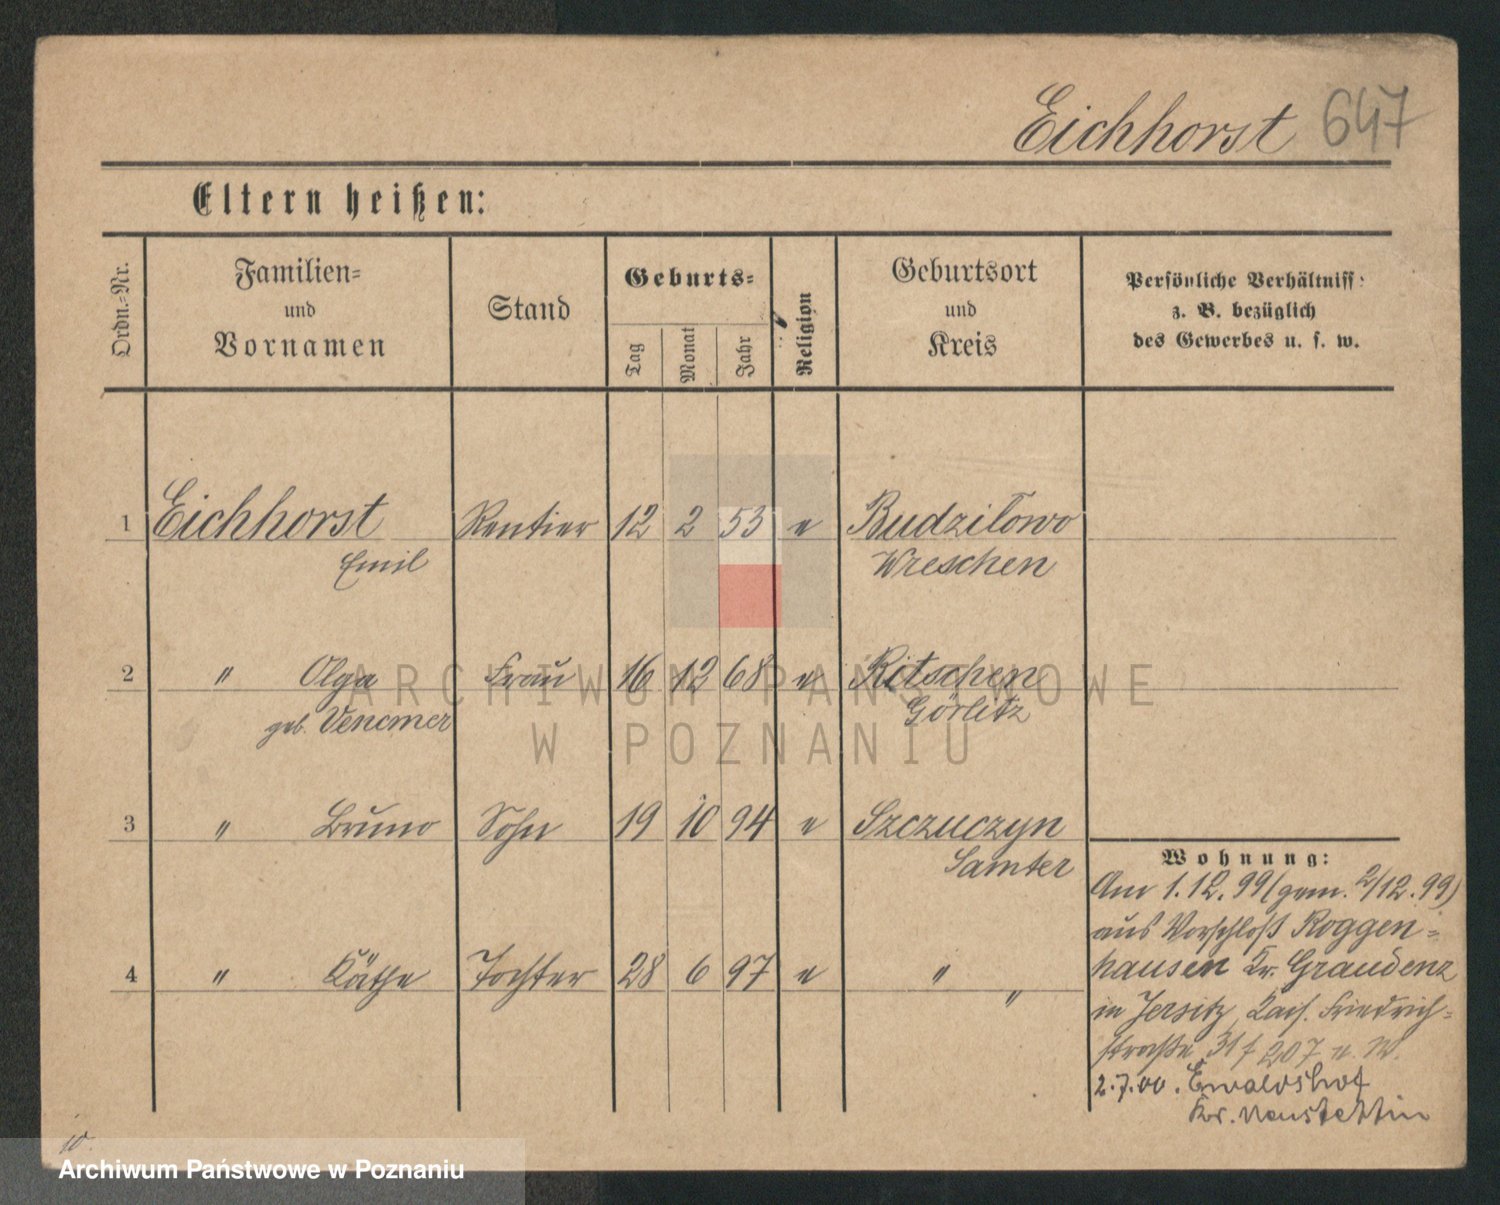 Eichhorst 647
Eltern heißen:
Ordn.=Nr.
Familien=
und
Vornamen
Stand
Geburts=
Tag
Monat
Jahr
Religion
Geburtsort
und
Kreis
Persönliche Verhältniss
z. B. bezüglich
des Gewerbes u. s. w.
1 Eichhorst Rentier 12 2 53 e Budzilowo
Emil Wreschen
2 " Olga Frau 16 12 68 e Ritschen
geb. Görlitz
3 " Bruno Sohn 19 10 94 e Szczuczyn
Samter
4 " Käthe Tochter 28 6 97 e " "
Wohnung:
Am 1.12.99 (gem. 2/12.99)
aus Vorschloß Roggen=
hausen Kr. Graudenz
in Jersitz, Kais. Friedrich=
straße 31 207
2.7.00. Ewaldshof
Kr. Neustettin
ARCHIWUM PAŃSTWOWE
W POZNANIU
Archiwum Państwowe w Poznaniu